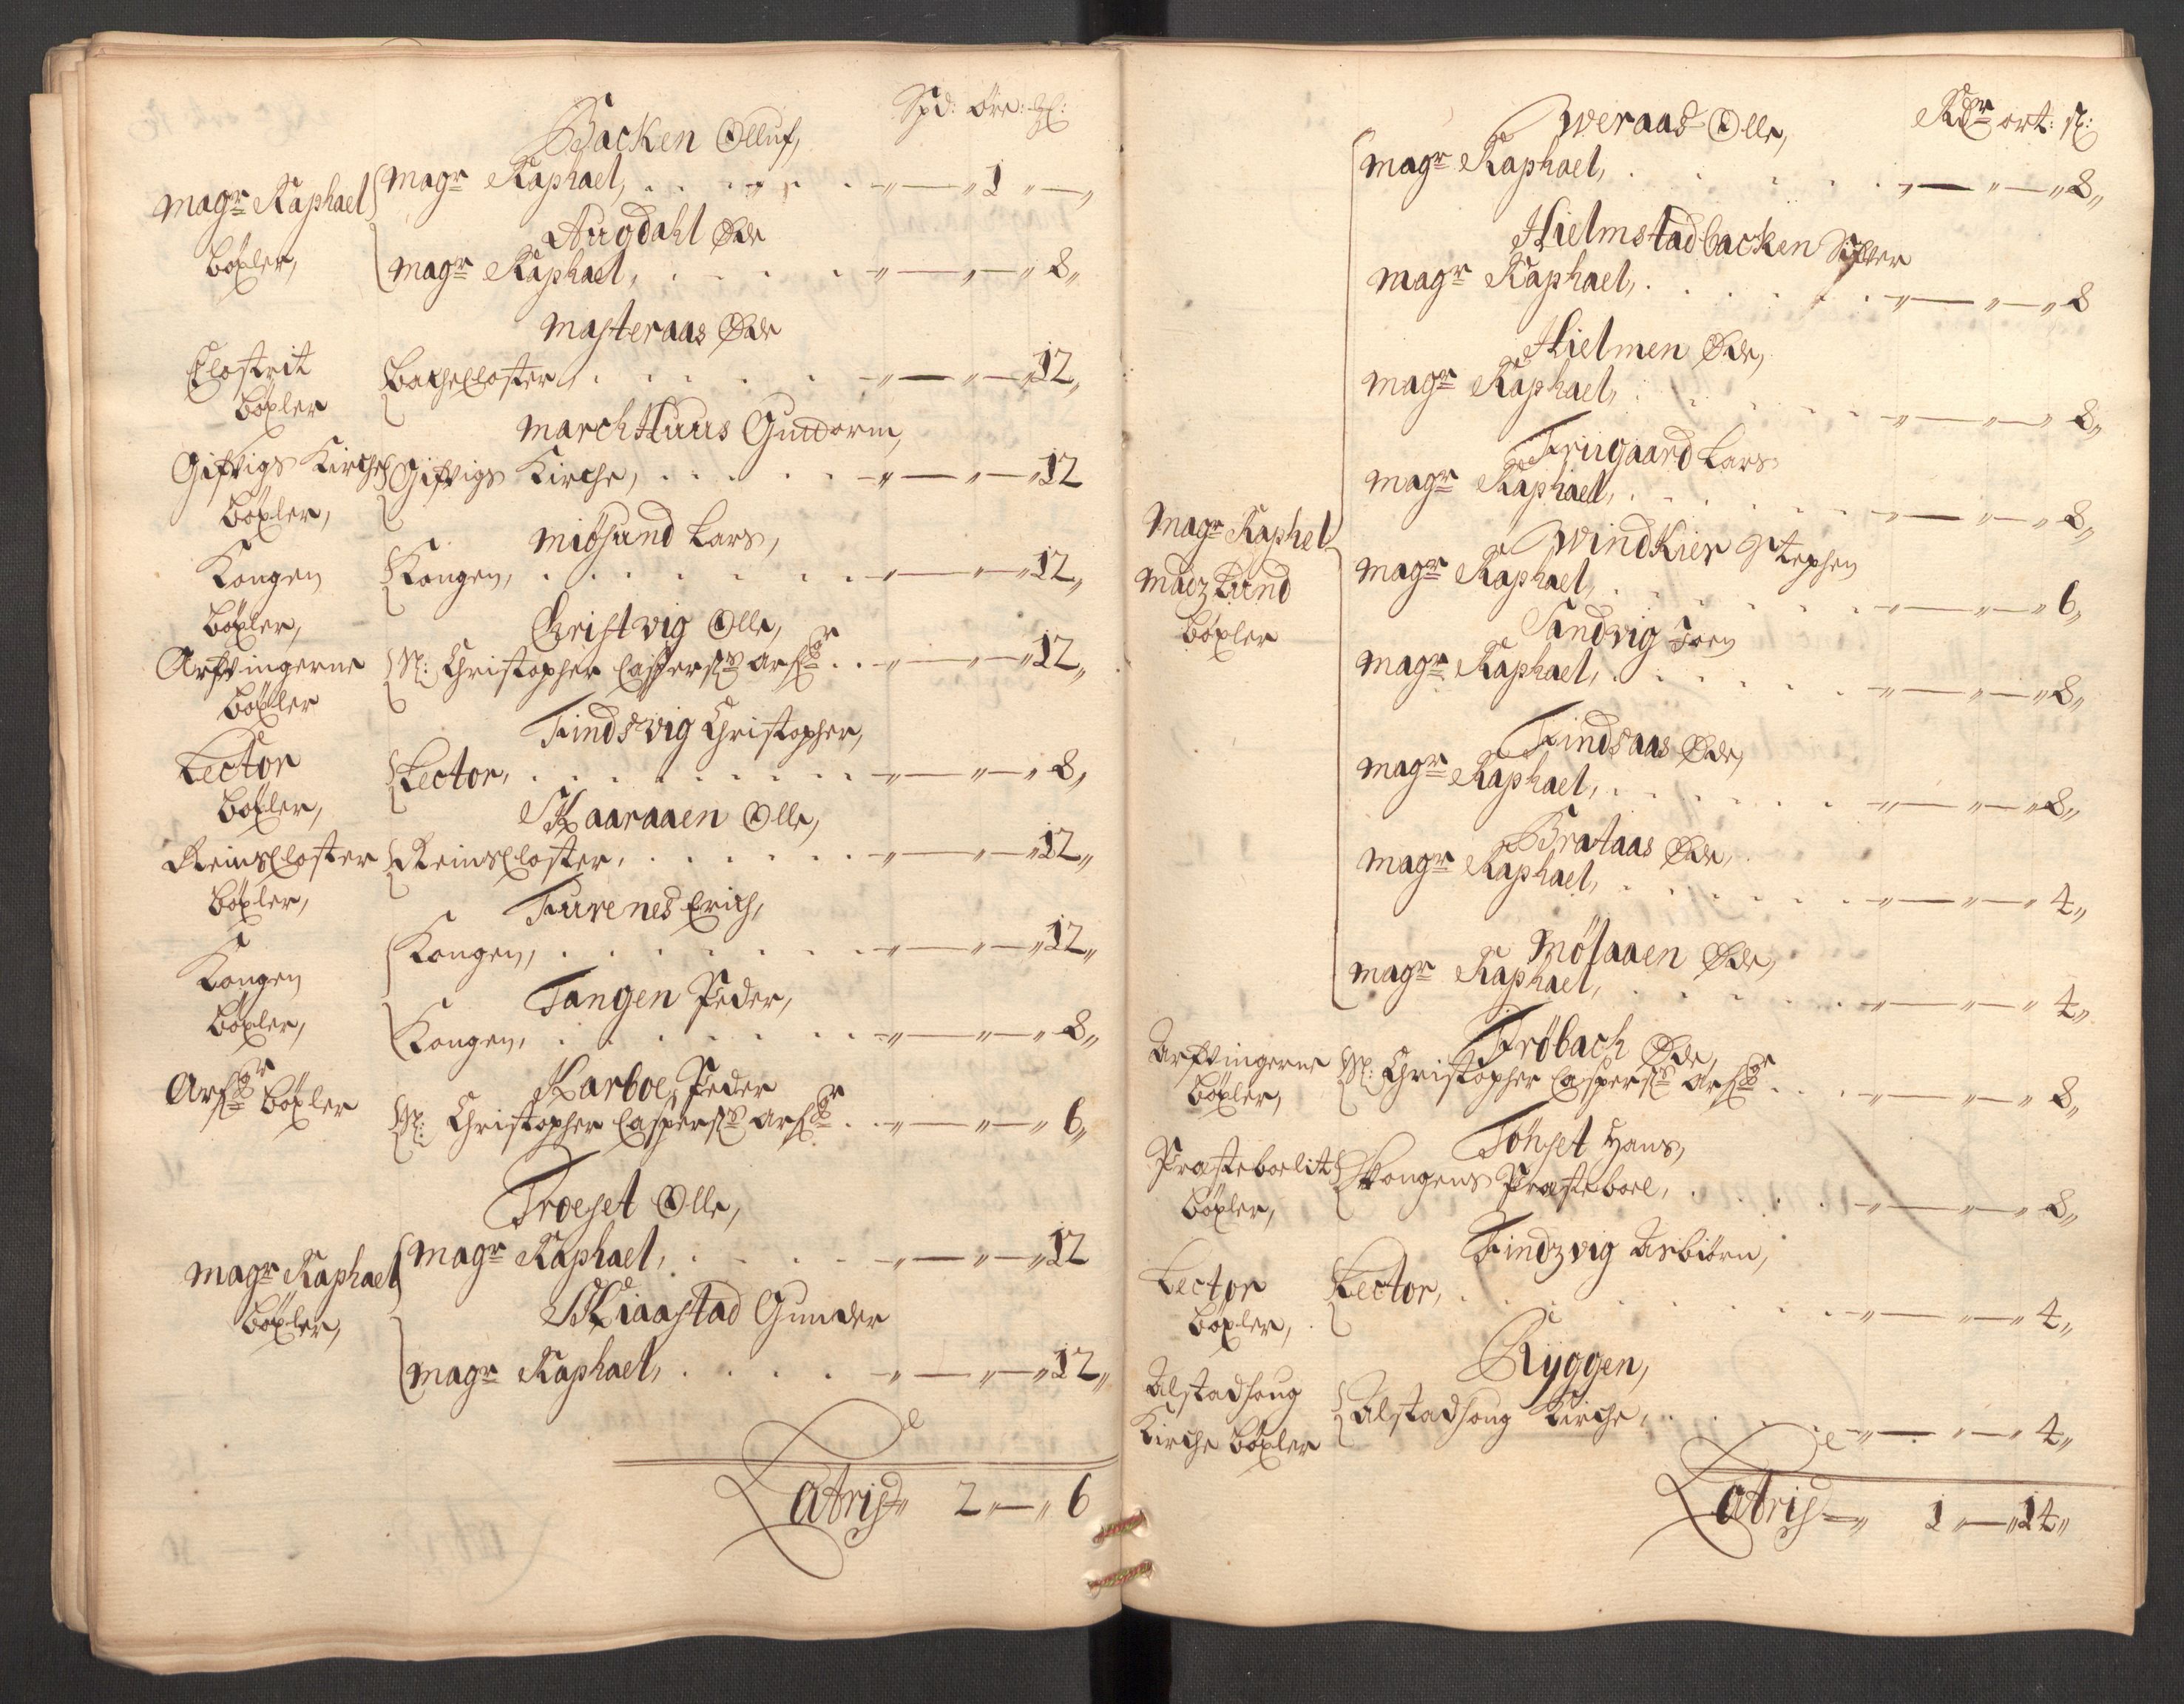 Spd: øre:
Backen Olluf,
Magr Raphael Bøxler, Magr Raphael, 1
Augdahl Øde
Magr Raphael, 8
Masteraas Øde
Closterit Bøxler Backecloster, 12
Marchhuus Guttorm,
Giftvigs Kirche Bøxler, Giftvigs Kirche, 12
Miösund Lars,
Kongen Bøxler, Kongen, 12
Christvig Olle,
Arfvingerne Bøxler Sl: Christopher Caspersens Arf: 12
Findsvig Christopher,
Lector Bøxler, Lector, 8
Skaaraaen Olle,
Reinscloster Bøxler, Reinscloster, 12
Furenes Erich,
Kongen Bøxler, Kongen, 12
Tangen Peder,
Kongen, 8
Karboe, Peder
Arf: Bøxler Sl: Christopher Caspersens Arf: 6
Troeset Olle,
Magr Raphael Bøxler, Magr Raphael, 12
Skiaastad Gunder
Magr Raphael, 12
Latris 2 — 6
Rdr ort: s:
Weraas Olle,
Magr Raphael, 8
Hielmstadbacken Sifver
Magr Raphael, 8
Hielmen Øde,
Magr Raphael, 8
Friigaard Lars
Magr Raphael, 8
Magr Raphel Madz Lund Bøxler
Windkier Stephen
Magr Raphael, 6
Sandvig Joen
Magr Raphael, 8
Findsaas Øde,
Magr Raphael, 8
Brataas Øde,
Magr Raphael, 4
Mösaaen Øde,
Magr Raphael, 4
Fröbach Øde,
Arfvingerne Bøxler, Sl: Christopher Caspersens Arf: 8
Tönset Hans,
Præsteboelit Bøxler, Kongens Præsteboel, 8
Findzvig Asbiørn,
Lector Bøxler, Lector, 4
Ryggen,
Alstadhoug Kirche Bøxler Alstadhoug Kirche, 4
Latris 1 — 14